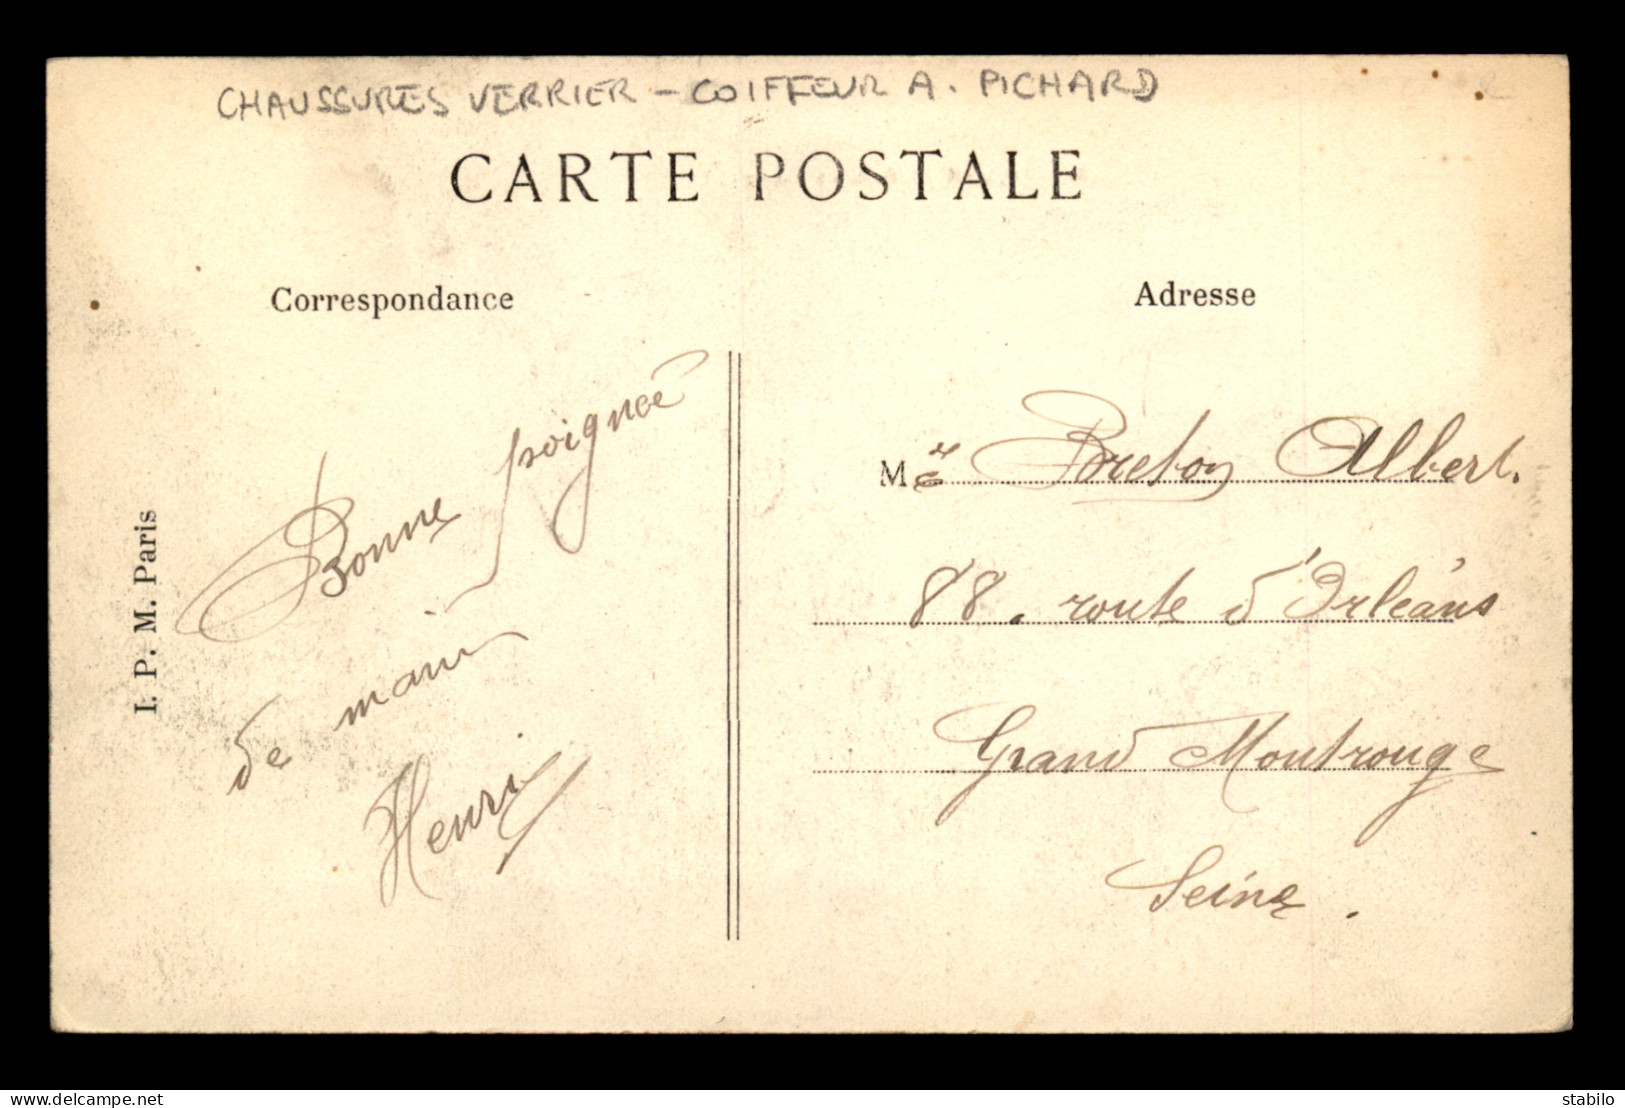 CHAUSSURES VERRIER - COIFFEUR A. PICHARD
CARTE POSTALE
Correspondance
Bonne poignée
de main
Henri
I. P. M. Paris
Adresse
Mr Breton Albert.
88. route d'Orléans
Grand Montrouge
Seine.
https://www.delcampe.net
stabilo